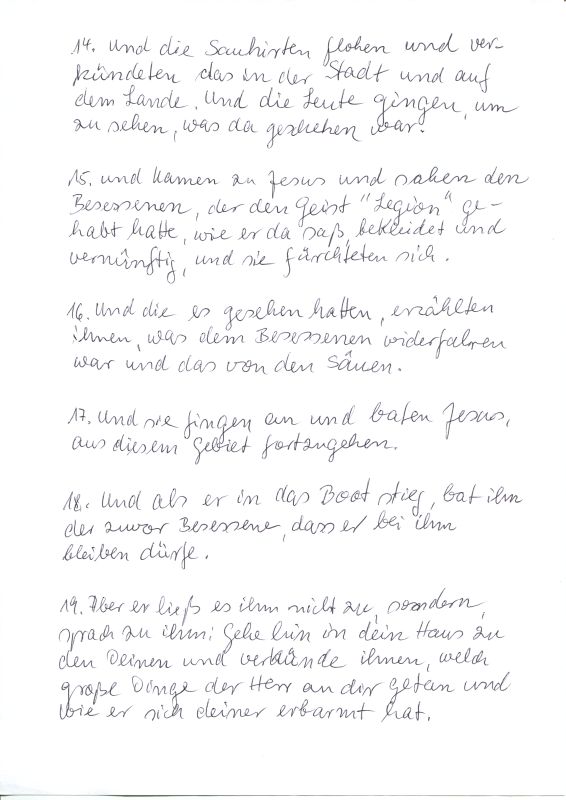 14. Und die Sauhirten flohen und ver-
kündeten das in der Stadt und auf
dem Lande. Und die Leute gingen, um
zu sehen, was da geschehen war.
15. und kamen zu Jesus und sahen den
Besessenen, der den Geist "Legion" ge-
habt hatte, wie er da saß, bekleidet und
vernünftig, und sie fürchteten sich.
16. Und die es gesehen hatten, erzählten
ihnen, was dem Besessenen widerfahren
war und das von den Säuen.
17. Und sie fingen an und baten Jesus,
aus diesem Gebiet fortzugehen.
18. Und als er in das Boot stieg, bat ihn
der zuvor Besessene, dass er bei ihm
bleiben dürfe.
19. Aber er ließ es ihm nicht zu, sondern
sprach zu ihm: Gehe hin in dein Haus zu
den Deinen und verkünde ihnen, welch
große Dinge der Herr an dir getan und
wie er sich deiner erbarmt hat.